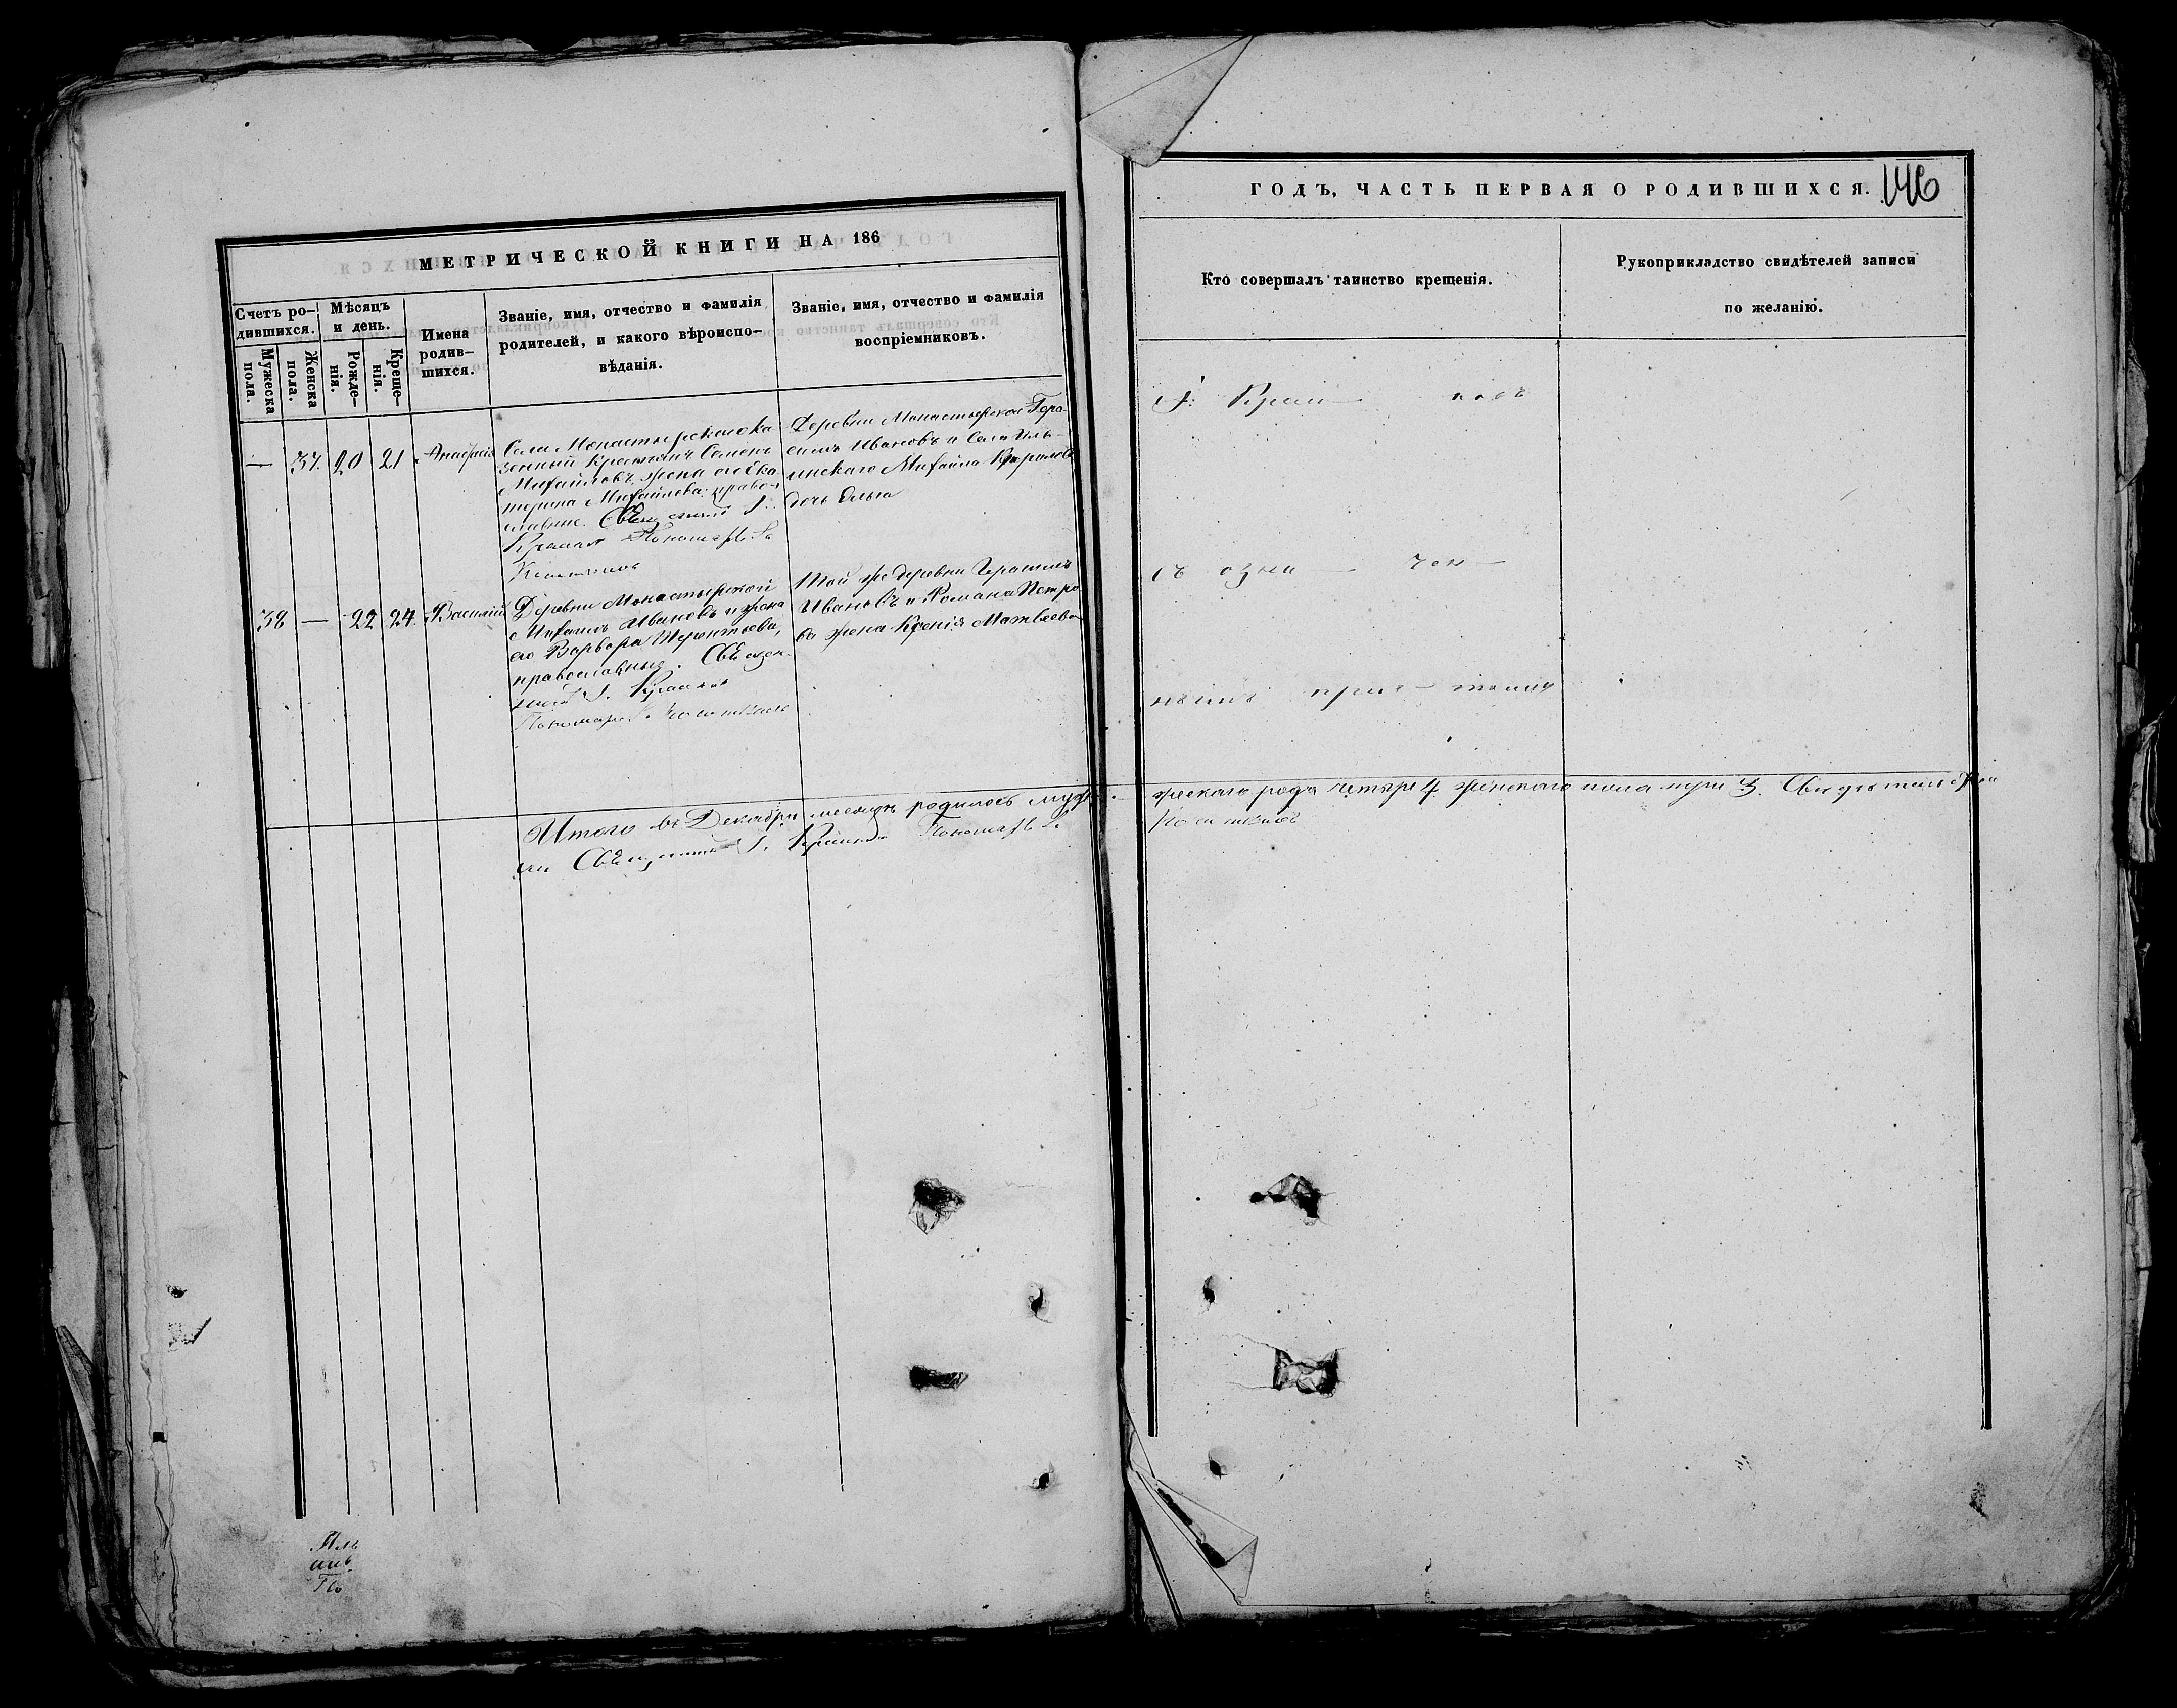 МЕТРИЧЕСКОЙ КНИГИ НА 186
Счетъ ро-
дившихся.
Мужеска
пола.
Женска
пола.
Мѣсяцъ
и день.
Рожде-
нія.
Креще-
нія.
Имена
родив-
шихся.
Званіе, имя, отчество и фамилія
родителей, и какого вѣроиспо-
вѣданія.
Званіе, имя, отчество и фамилія
воспріемниковъ.
— 37. 20 21 Анастасія
Села Монастырскаго ка-
зенный Крестьянинъ Семенъ
Михайловъ, жена его Ека-
терина Михайлова: право-
славные. Священникъ І.
Пономарь
Деревни Монастырской Гера-
симъ Ивановъ и Села Иль-
инскаго Михаила
дочь Ольга
38 — 22 24 Василій
Деревни Монастырской
Михаилъ Ивановъ и жена
его Варвара Терентьева,
православные. Священ-
никъ І.
Пономарь
Той же деревни Герасимъ
Ивановъ и Романа Петро
ва жена Ксенія Матвѣева
Итого въ Декабрѣ месяцѣ родилось муж-
ли Священникъ І. Пономарь
ГОДЪ, ЧАСТЬ ПЕРВАЯ О РОДИВШИХСЯ.
146
Кто совершалъ таинство крещенія.
Рукоприкладство свидѣтелей записи
по желанію.
І. Крас— ковъ
съ озна — чен—
нымъ прич— томъ
жескаго рода четыре 4 женскаго пола три 3.